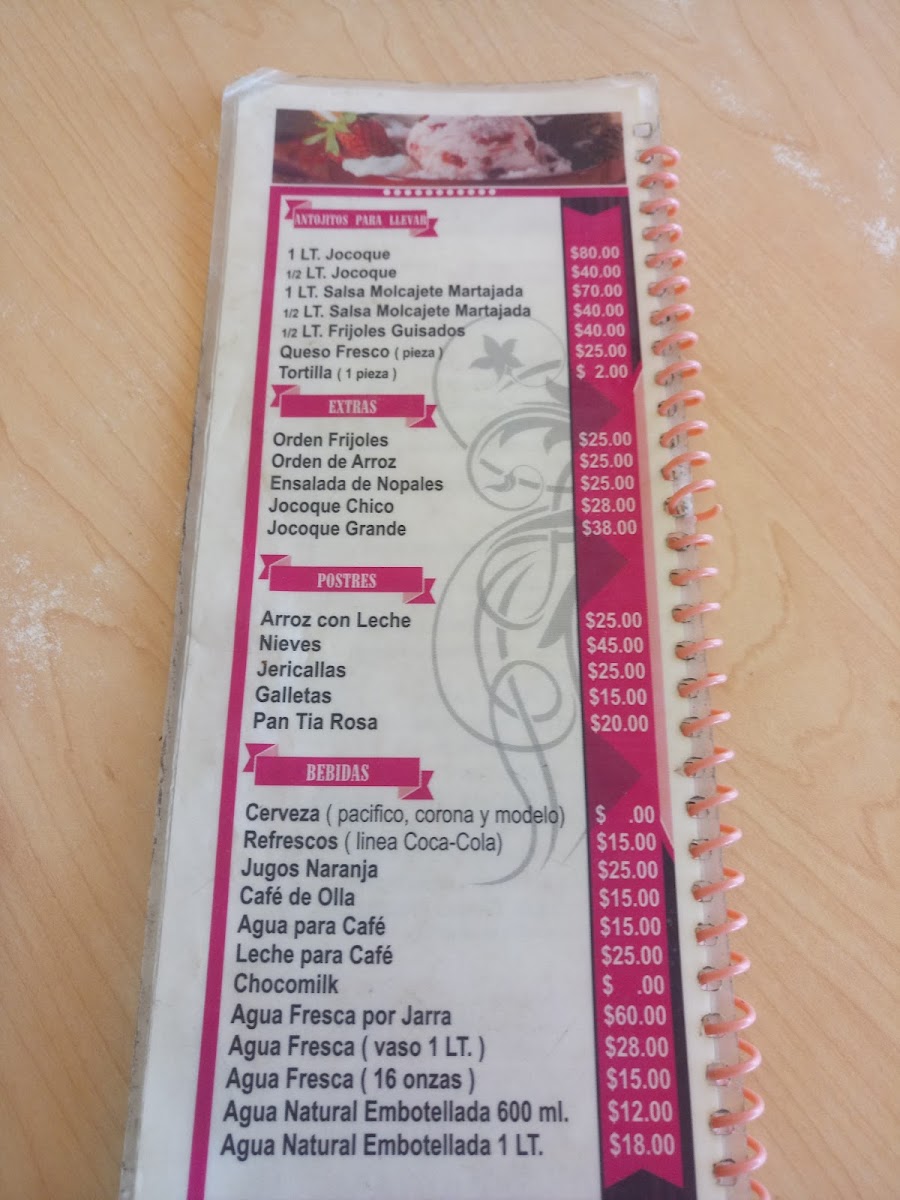 ANTOJITOS PARA LLEVAR
1 LT. Jocoque $80.00
1/2 LT. Jocoque $40.00
1 LT. Salsa Molcajete Martajada $70.00
1/2 LT. Salsa Molcajete Martajada $40.00
1/2 LT. Frijoles Guisados $40.00
Queso Fresco ( pieza ) $25.00
Tortilla ( 1 pieza ) $ 2.00
EXTRAS
Orden Frijoles $25.00
Orden de Arroz $25.00
Ensalada de Nopales $25.00
Jocoque Chico $28.00
Jocoque Grande $38.00
POSTRES
Arroz con Leche $25.00
Nieves $45.00
Jericallas $25.00
Galletas $15.00
Pan Tia Rosa $20.00
BEBIDAS
Cerveza ( pacifico, corona y modelo) $ .00
Refrescos ( linea Coca-Cola) $15.00
Jugos Naranja $25.00
Café de Olla $15.00
Agua para Café $15.00
Leche para Café $25.00
Chocomilk $ .00
Agua Fresca por Jarra $60.00
Agua Fresca ( vaso 1 LT. ) $28.00
Agua Fresca ( 16 onzas ) $15.00
Agua Natural Embotellada 600 ml. $12.00
Agua Natural Embotellada 1 LT. $18.00